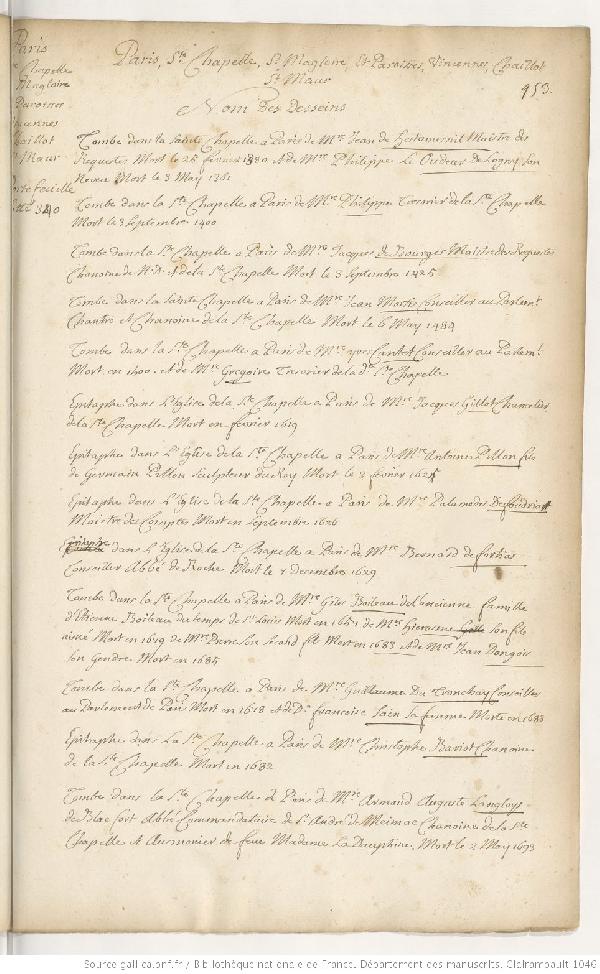 Paris
Chapelle
Magloire
Paroisses
Vincennes
Chaillot
St Maur
340
Paris, Ste Chapelle, St Magloire, Et Paroisses, Vincennes, Chaillot
St Maur
953.
Nom Des Desseins
Tombe dans la Sainte Chapelle a Paris de Mre Jean de Maistre des
Requestes Mort le 25 fevrier 1380 et de Mre Philippe Le de Logny son
Neveu Mort le 3 May 1361
Tombe dans la Ste Chapelle a Paris de Mre Philippe Tresorier de la Ste Chapelle
Mort le 3 Septembre 1400
Tombe dans la Ste Chapelle a Paris de Mre Jacques de Bourges Maistre des Requestes
Chanoine de N.D. et de la Ste Chapelle Mort le 3 Septembre 1425
Tombe dans la Sainte Chapelle a Paris de Mre Jean Conseiller au Parlemt
Chantre et Chanoine de la Ste Chapelle Mort le 6 May 1484
Tombe dans la Ste Chapelle a Paris de Mre yves Conseiller au Parlemt
Mort en 1400 et de Mre Gregoire Tresorier de la de Ste Chapelle
Epitaphe dans L'Eglise de la Ste Chapelle a Paris de Mre Jacques Gillot Chancelier
de la Ste Chapelle Mort en fevrier 1619
Epitaphe dans L'Eglise de la Ste Chapelle a Paris de Mre Antoine Pillon fils
de Germain Pillon Sculpteur du Roy Mort le 2 fevrier 1625
Epitaphe dans L'Eglise de la Ste Chapelle a Paris de Mre Palamedes
Maistre des Comptes Mort en Septembre 1626
dans L'Eglise de la Ste Chapelle a Paris de Mre Bernard de fortias
Conseiller Abbé de Roche Mort le 7 decembre 1629
Tombe dans la Ste Chapelle a Paris de Mre Giles Boileau de l'ancienne famille
d'Etienne Boileau du temps de St Louis Mort en 1657 de Mre Hierosme son fils
aisné Mort en 1679 de Mre son second fils Mort en 1683 et de Mre Jean Dongois
son Gendre Mort en 1685
Tombe dans la Ste Chapelle a Paris de Mre Guillaume Du Tronchay Conseiller
au Parlement de Paris Mort en 1618 et de De francoise sa femme Morte en 1683
Epitaphe dans La Ste Chapelle a Paris de Mre Christophe Barjot Chanoine
de la Ste Chapelle Mort en 1682
Tombe dans la Ste Chapelle de Paris de Mre Armand Auguste Langloys
de Blacfort Abbé Commendataire de St André de Meimac Chanoine de la Ste
Chapelle et Aumonier de feue Madame La Dauphine. Mort le 2 May 1693
Source gallica.bnf.fr / Bibliothèque nationale de France. Département des manuscrits. Clairambault 1046